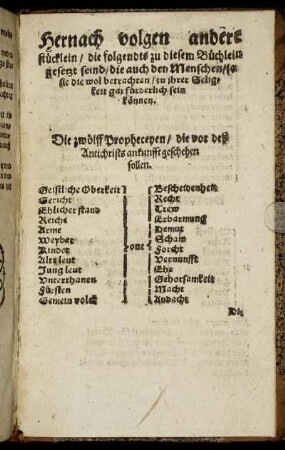 Hernach volgen andere
stücklein / die folgendts zu diesem Büchlein
gesetzt seind / die auch den Menschen / so
sie die wol betrachten / zu ihrer Selig-
keit gar fürderlich sein
können.
Die zwölff Propheceyen / die vor deß
Antichrists ankunfft geschehen
sollen.
Geistliche Oberkeit
Gericht
Ehlicher stand
Reiche
Arme
Weyber
Kinder
Alt leut
Jung leut
Unterthanen
Fürsten
Gemein volck
one
Bescheidenheit
Recht
Trew
Erbarmung
Demut
Scham
Forcht
Vernunfft
Ehr
Gehorsamkeit
Macht
Andacht